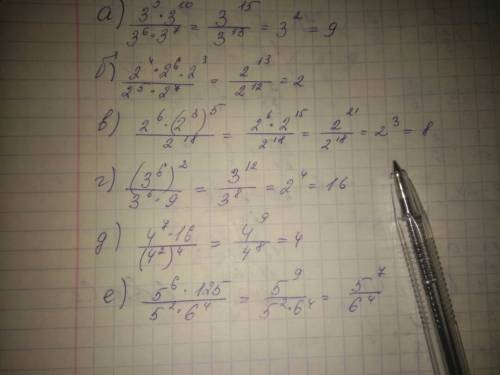 а) 3⁵ · 3¹⁰ / 3⁶ · 3⁷ = 3¹⁵ / 3¹³ = 3² = 9
б) 2⁴ · 2⁶ · 2³ / 2⁵ · 2⁷ = 2¹³ / 2¹² = 2
в) 2⁶ · (2³)⁵ / 2¹⁸ = 2⁶ · 2¹⁵ / 2¹⁸ = 2²¹ / 2¹⁸ = 2³ = 8
г) (3⁶)² / 3⁶ · 9 = 3¹² / 3⁸ = 2⁴ = 16
д) 4⁷ · 16 / (4²)⁴ = 4⁹ / 4⁸ = 4
е) 5⁶ · 125 / 5² · 6⁴ = 5⁹ / 5² · 6⁴ = 5⁷ / 6⁴